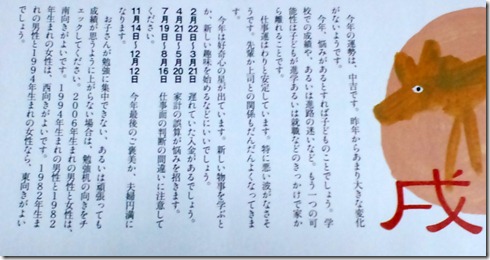 戌
今年の運勢は、中吉です。昨年からあまり大きな変化
がないようです。
今年、悩みがあるとすれば子どものことでしょう。学
校での成績や、あるいは進路の迷いなど。もう一つの可
能性は子どもが進学あるいは就職などのきっかけで家か
ら離れることです。
仕事運はわりと安定しています。特に悪い波がなさそ
うです。先輩か上司との関係もだんだんよくなってきま
す。
今年は好奇心の星が出ています。新しい物事を学ぶと
か、新しい趣味を始めるなどにいいでしょう。
2月22日〜3月21日 遅れていた入金があるでしょう。
4月21日〜5月20日 家計の誤算が悩みを招きます。
7月19日〜8月16日 仕事面の判断の間違いに注意して
ください。
11月14日〜12月12日 今年最後のご褒美か、夫婦円満に
なります。
お子さんが勉強に集中できない、あるいは頑張っても
成績が思うように上がらない場合は、勉強机の向きをチ
ェックしてください。2006年生まれの男性と女性は、
南向きがよいです。1994年生まれの男性と1982
年生まれの女性は、西向きがよいです。1982年生ま
れの男性と1994年生まれの女性なら、東向きがよい
でしょう。